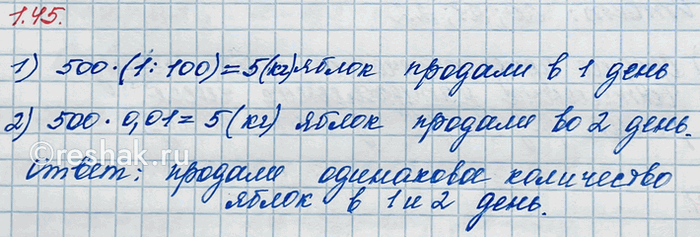 1.45.
1) 500·(1:100)=5(кг) яблок продали в 1 день
2) 500·0,01=5(кг) яблок продали во 2 день.
©reshak.ru
Ответ: продали одинаковое количество
яблок в 1 и 2 день.